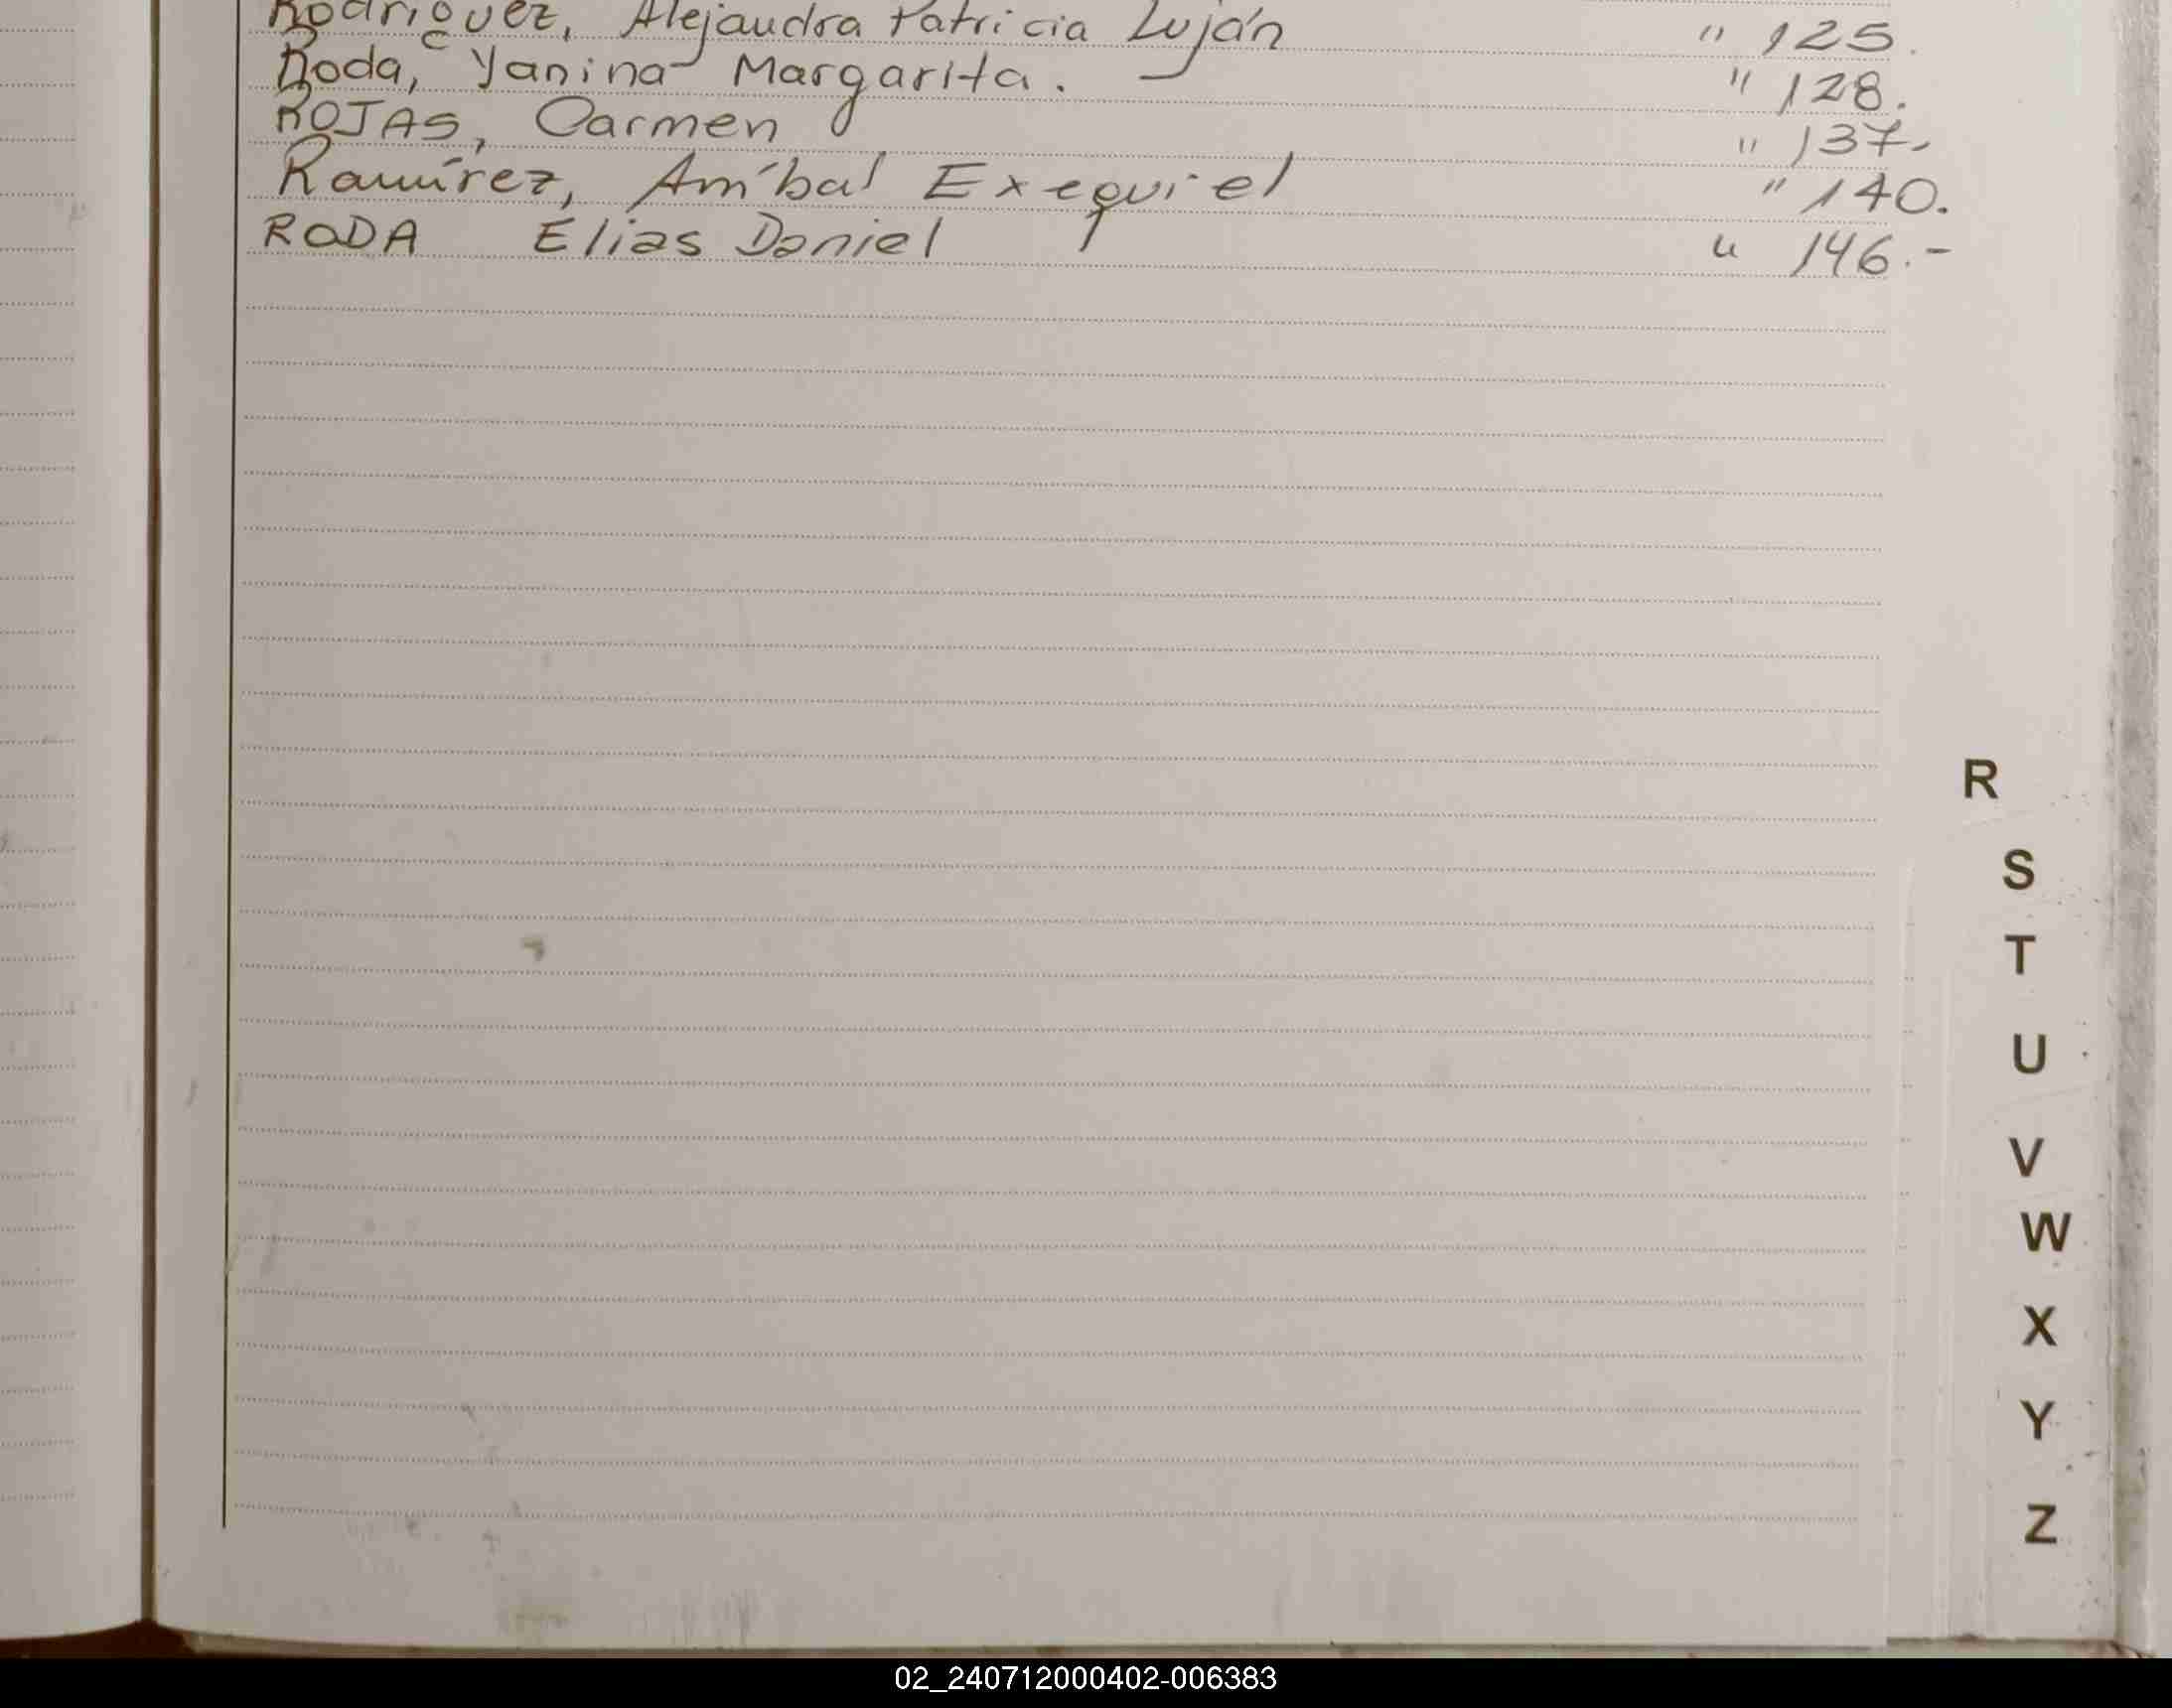 Rodriguez, Alejandra Patricia Luján " 125.
Roda, Yanina Margarita. " 128.
ROJAS, Carmen " 137.
Ramírez, Aníbal Exequiel " 140.
RODA Elias Daniel " 146.-
R
S
T
U
V
W
X
Y
Z
02_240712000402-006383